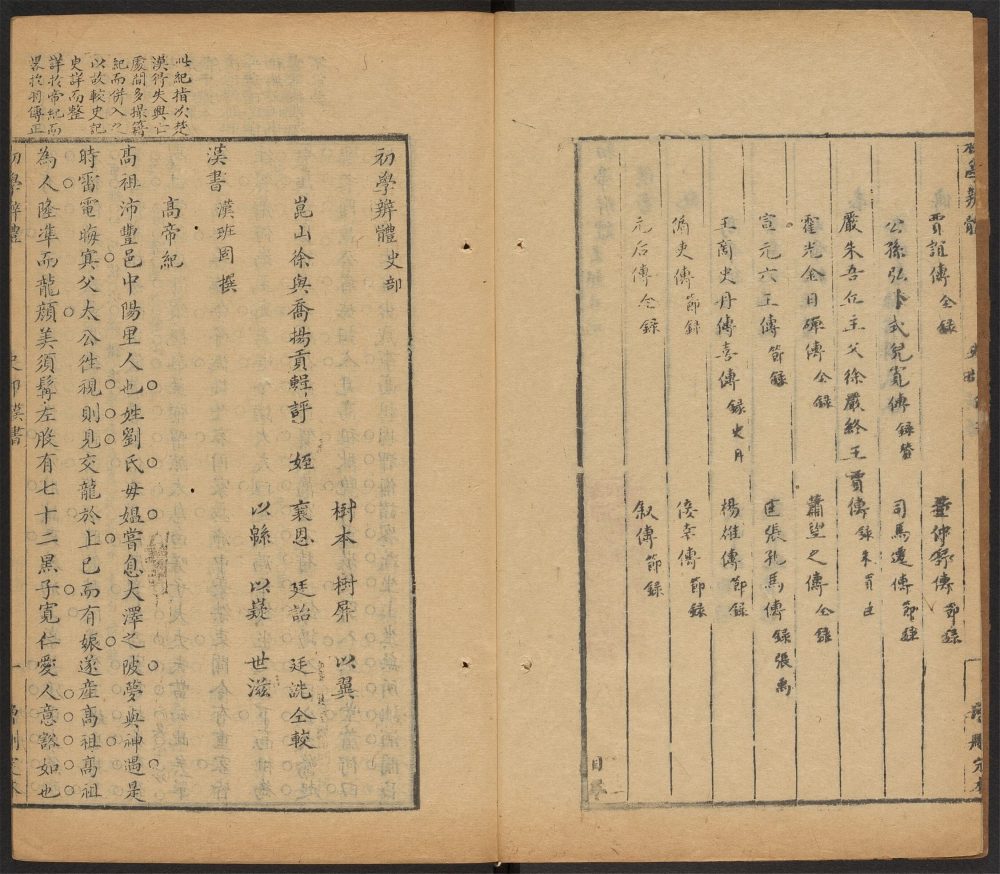 初學辨體
賈誼傳全錄
董仲舒傳節錄
公孫弘卜式兒寬傳錄
司馬遷傳節錄
嚴朱吾丘主父徐嚴終王賈傳錄朱買臣
霍光金日磾傳全錄
蕭望之傳全錄
宣元六王傳節錄
匡張孔馬傳錄張禹
王商史丹傅喜傳錄史丹
楊雄傳節錄
循吏傳節錄
佞幸傳節錄
元后傳全錄
敘傳節錄
目錄
此紀指以楚
漢得失興亡
處間多操籍
紀而併入之
以故較史記
史詳而整
詳於帝紀而
畧於羽傳正
初學辨體史部
崑山徐與喬揚貢輯評
姪
樹本樹屏以翼
襄恩廷詒廷詵仝較
以繇以嶷世滋
漢書
漢班固撰
高帝紀
高祖沛豐邑中陽里人也姓劉氏母媼嘗息大澤之陂夢與神遇是
時雷電晦冥父太公往視則見交龍於上已而有娠遂產高祖高祖
為人隆準而龍顏美須髯左股有七十二黑子寬仁愛人意豁如也
初學辨體
史部漢書
一